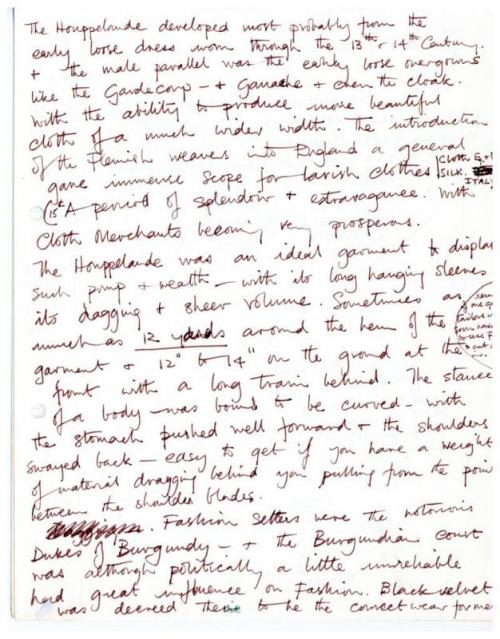 The Houppelaude developed most probably from the
early loose dress worn through the 13th & 14th Century.
+ the male parallel was the early loose overgowns
like the Gardecorp - + Ganache + even the cloak.
With the ability to produce more beautiful
cloth of a much wider width. The introduction
of the Flemish weavers into England a general
gave immense scope for lavish clothes
CLOTH E.
SILK.
ITALY
(15th A period of splendour + extravagance. With
Cloth Merchants becoming very prosperous.
The Houppelaude was an ideal garment to display
such pomp + wealth - with its long hanging sleeves
its dagging + sheer volume. Sometimes as
much as 12 yards around the hem of the
garment + 12" to 14" on the ground at the
front with a long train behind. The stance
of a body - was bound to be curved - with
the stomach pushed well forward + the shoulders
swayed back - easy to get if you have a weight
of material dragging behind you pulling from the poin
between the shoulder blades.
Fashion setters were the notorious
Dukes of Burgundy - + the Burgundian court
was although politically a little unreliable
had great influence on Fashion. Black velvet
was decreed there to be the correct wear for me